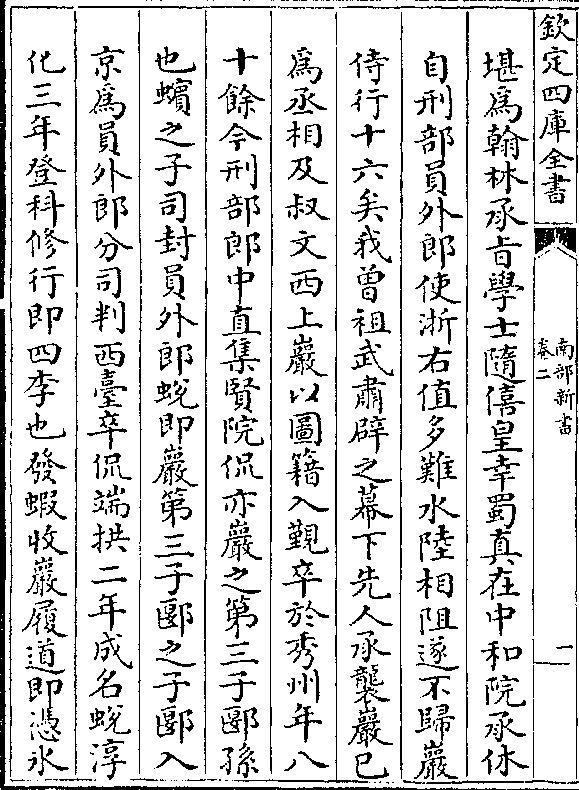 欽定四庫全書
南部新書
卷二
一
堪為翰林承旨學士隨僖皇幸蜀真在中和院承休
自刑部員外郎使浙右值多難水陸相阻遂不歸巖
侍行十六矣我曾祖武肅辟之幕下先人承襲巖已
為丞相及叔文西上巖以圖籍入覲卒於秀州年八
十餘今刑部郎中直集賢院侃亦巖之第三子郾孫
也蠙之子司封員外郎蛻即巖第三子郾之子郾入
京為員外郎分司判西臺卒侃端拱二年成名蛻淳
化三年登科修行即四李也發蝦收巖履道即憑氷